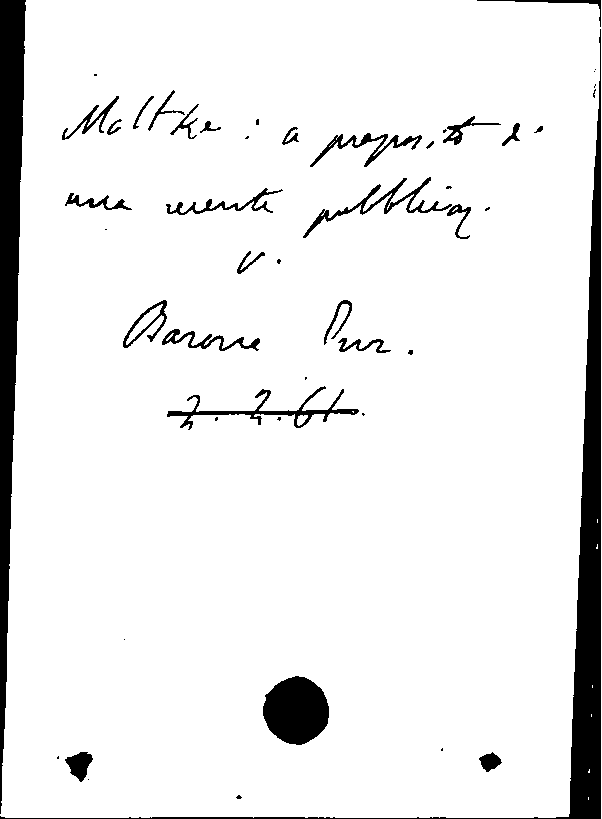 Moltke: a proposito di
una recente pubblicaz.
v.
Barone Enr.
2.2.61.